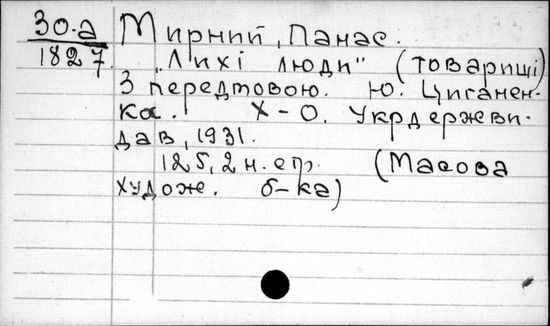 30.а Мирний, Панас.
1827. "Лихі люди" (товариші)
З передмовою. Ю. Циганен-
ка. Х-О. Укрдержви-
дав, 1931.
125, 2 н. стр. (Масова
художе. б-ка)